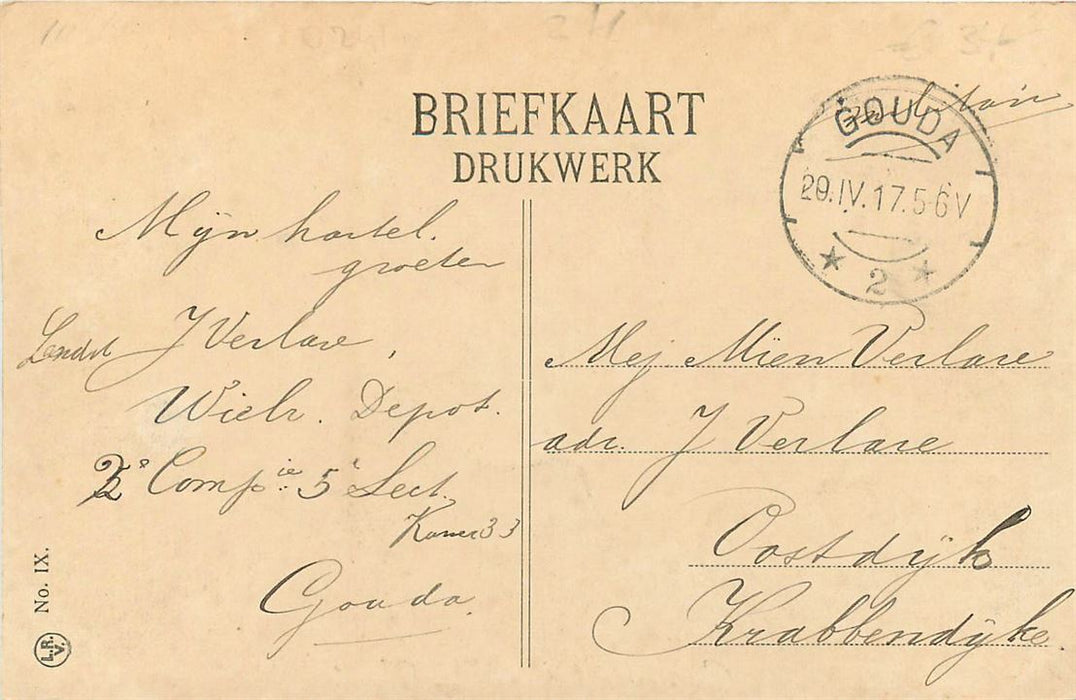 BRIEFKAART
DRUKWERK
GOUDA
29.IV.17.5-6V
2
Mijn hartel.
groeten
Landst J Verlare,
Wielr. Depot.
2e Compie. 5e Sect.
Kamer 33
Gouda.
Mej. Mien Verlare
adr. J Verlare
Oostdijk
Krabbendijke
No. IX.
L.R.V.